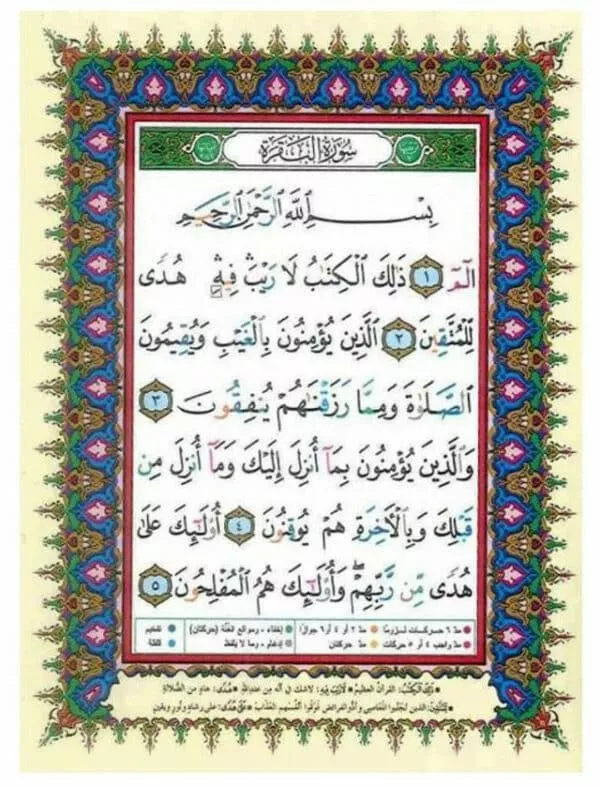 سُورَةُ البَقَرَة
بِسْمِ ٱللَّهِ ٱلرَّحْمَٰنِ ٱلرَّحِيمِ
الٓمٓ ١ ذَٰلِكَ ٱلْكِتَٰبُ لَا رَيْبَ ۛ فِيهِ ۛ هُدًى
لِّلْمُتَّقِينَ ٢ ٱلَّذِينَ يُؤْمِنُونَ بِٱلْغَيْبِ وَيُقِيمُونَ
ٱلصَّلَوٰةَ وَمِمَّا رَزَقْنَٰهُمْ يُنفِقُونَ ٣
وَٱلَّذِينَ يُؤْمِنُونَ بِمَآ أُنزِلَ إِلَيْكَ وَمَآ أُنزِلَ مِن
قَبْلِكَ وَبِٱلْأَخِرَةِ هُمْ يُوقِنُونَ ٤ أُو۟لَٰٓئِكَ عَلَىٰ
هُدًى مِّن رَّبِّهِمْ ۖ وَأُو۟لَٰٓئِكَ هُمُ ٱلْمُفْلِحُونَ ٥
مدّ ٦ حركات لزوماً مدّ ٢ أو ٤ أو ٦ جوازاً إخفاء، ومواقع الغُنَّة (حركتان) تفخيم
مدّ واجب ٤ أو ٥ حركات مدّ حركتان إدغام، وما لا يُلفظ قلقلة
ذلك الكتابُ: القرآن العظيم لا ريب فيه: لا شك في أنه من عند الله هُدًى: هادٍ من الضلالة